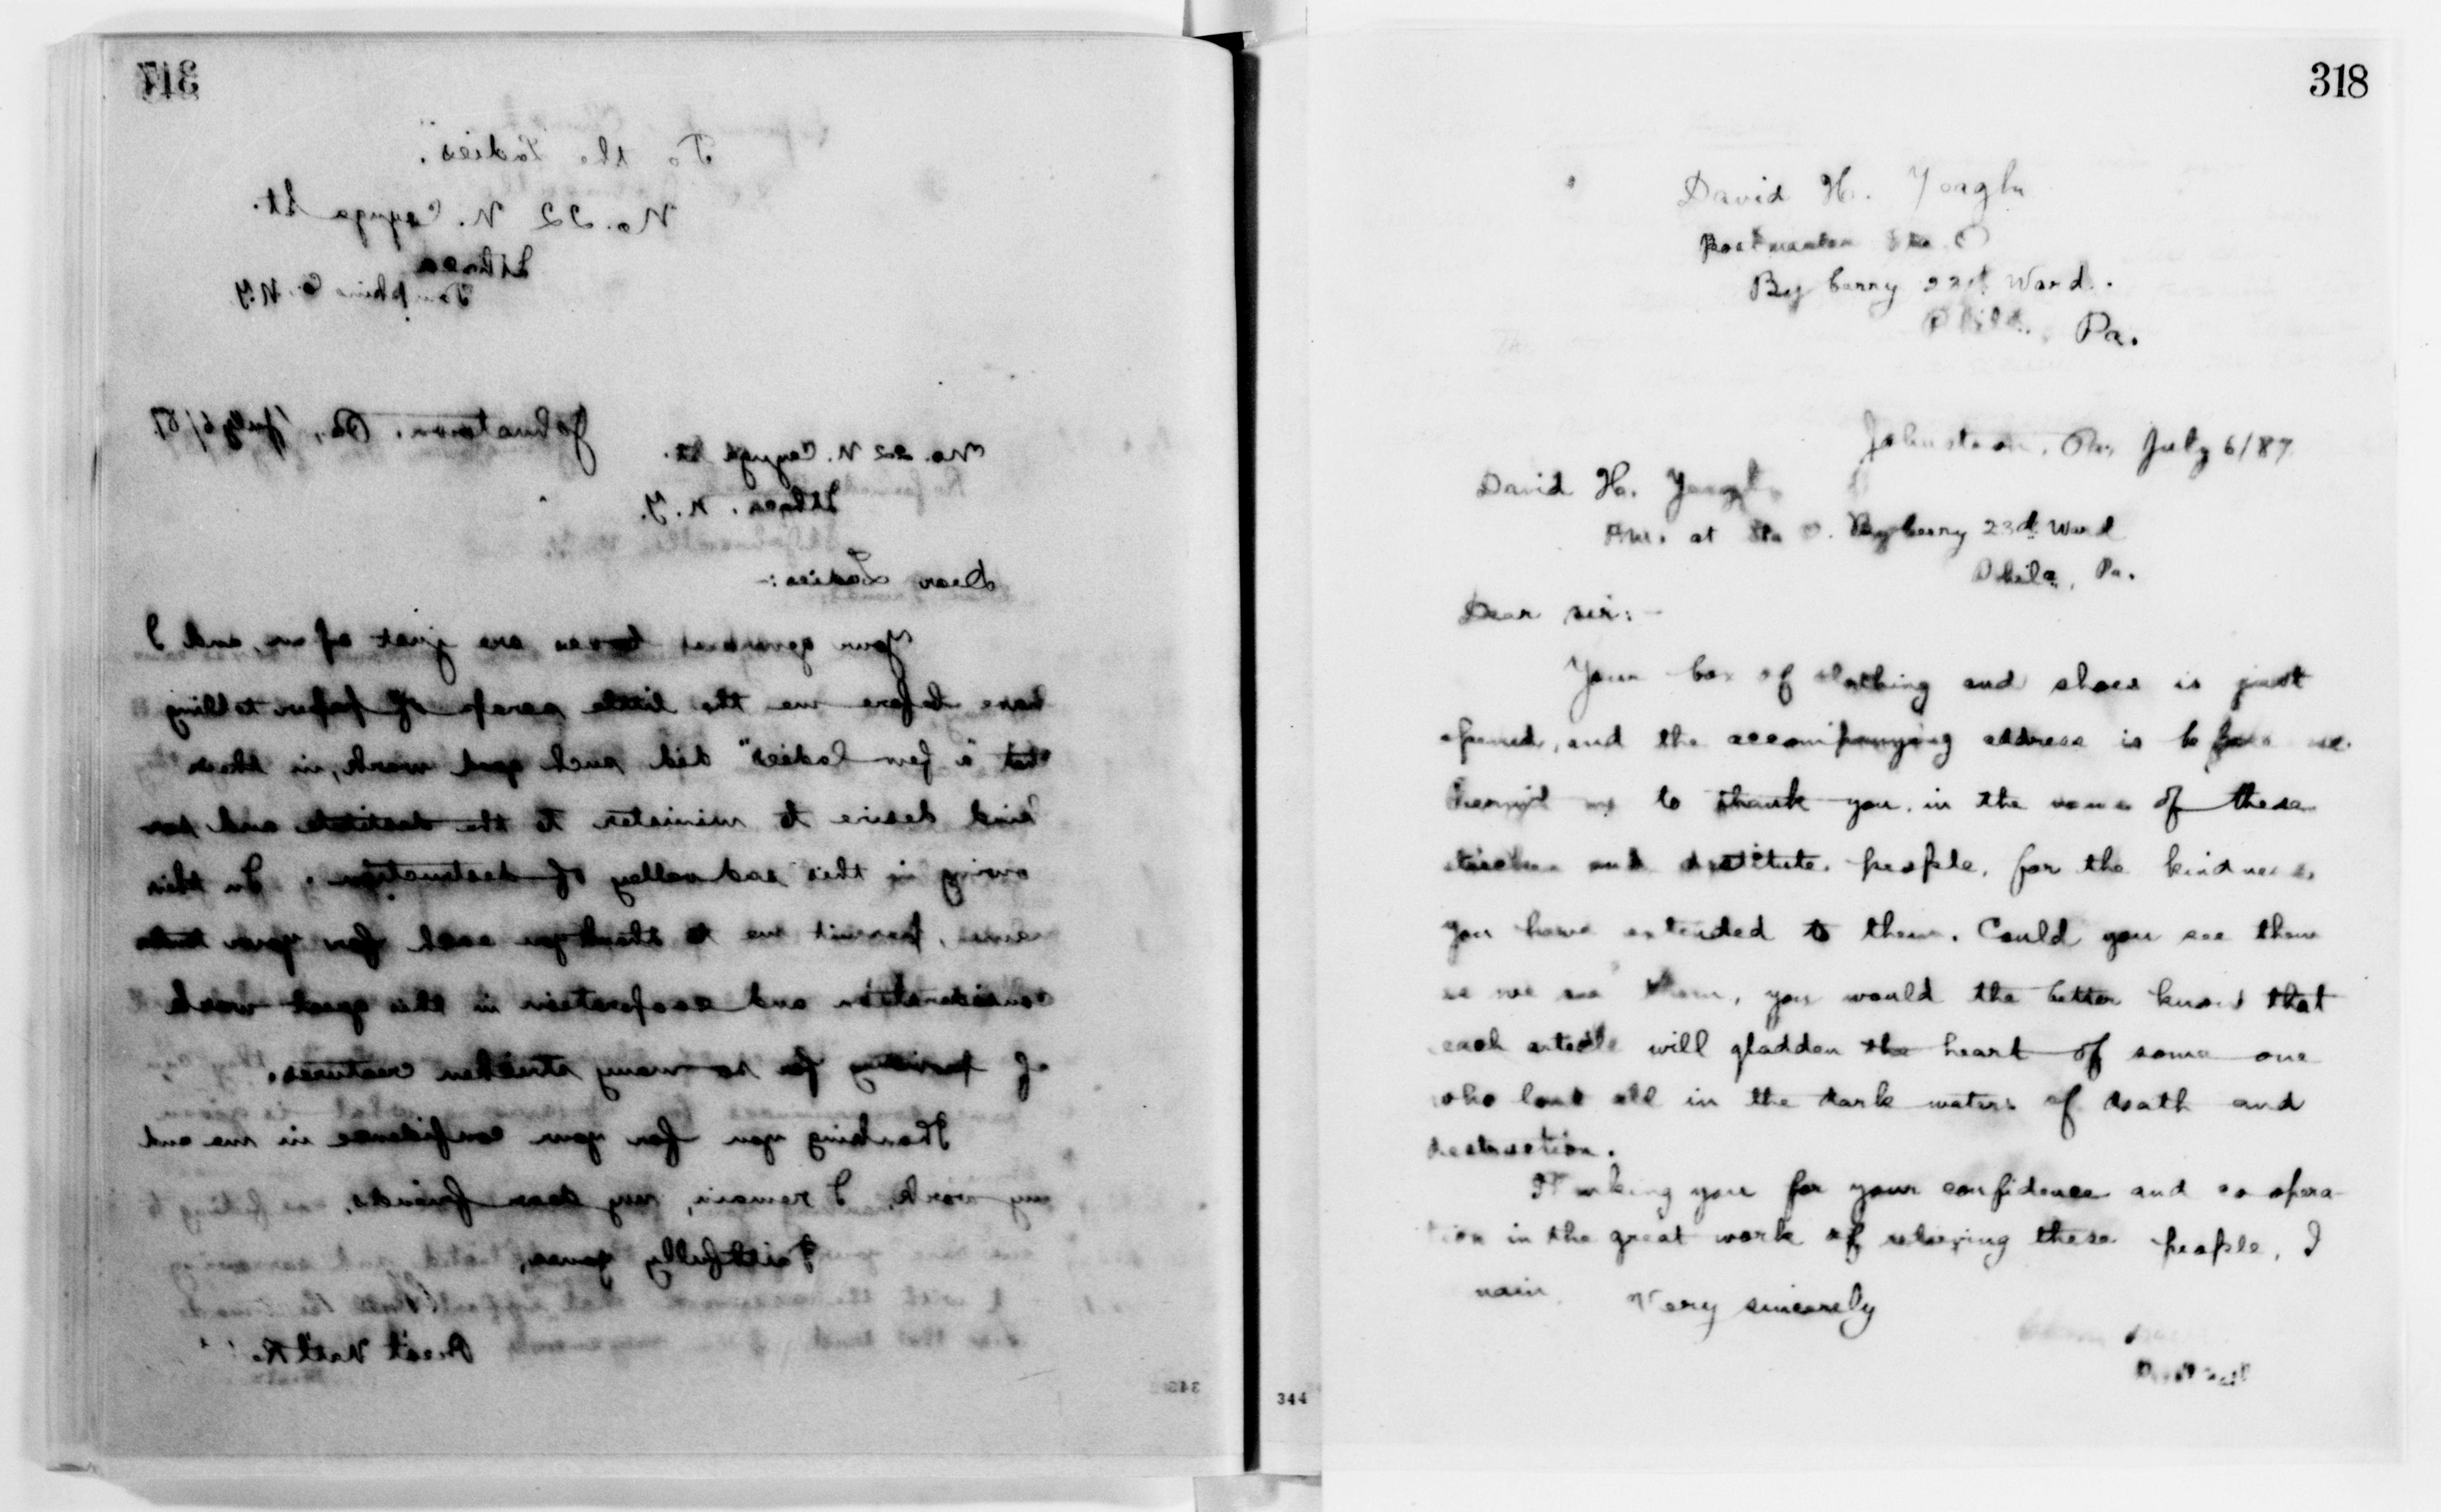 317
To the Ladies.
No. 22 N. Cayuga St.
Ithaca
Tompkins Co. N.Y.
Johnstown, Pa., July 6/89
No. 22 N. Cayuga St.
Ithaca, N.Y.
Dear Ladies:-
Your generous boxes are just open, and I
have before me the little scrap of paper telling
that "a few ladies" did such good work, in their
kind desire to minister to the destitute and sor
rowing in this sad valley of destruction. In their
name, permit me to thank you each for your tender
consideration and cooperation in this great work
of providing for so many stricken creatures.
Thanking you for your confidence in me and
my work, I remain, my dear friends,
Faithfully yours,
Prest Natl R.
343
318
David H. Yeagle
Postmaster Sta O
Byberry 23d Ward.
Phila. Pa.
Johnstown, Pa, July 6/89
David H. Yeagle
P.M. at Sta O. Byberry 23d Ward
Phila, Pa.
Dear sir:-
Your box of clothing and shoes is just
opened, and the accompanying address is before me.
Permit me to thank you, in the name of these
stricken and destitute people, for the kindness
you have extended to them. Could you see them
as we see them, you would the better know that
each article will gladden the heart of some one
who lost all in the dark waters of death and
destruction.
Thanking you for your confidence and coopera
tion in the great work of relieving these people, I
main, Very sincerely
344